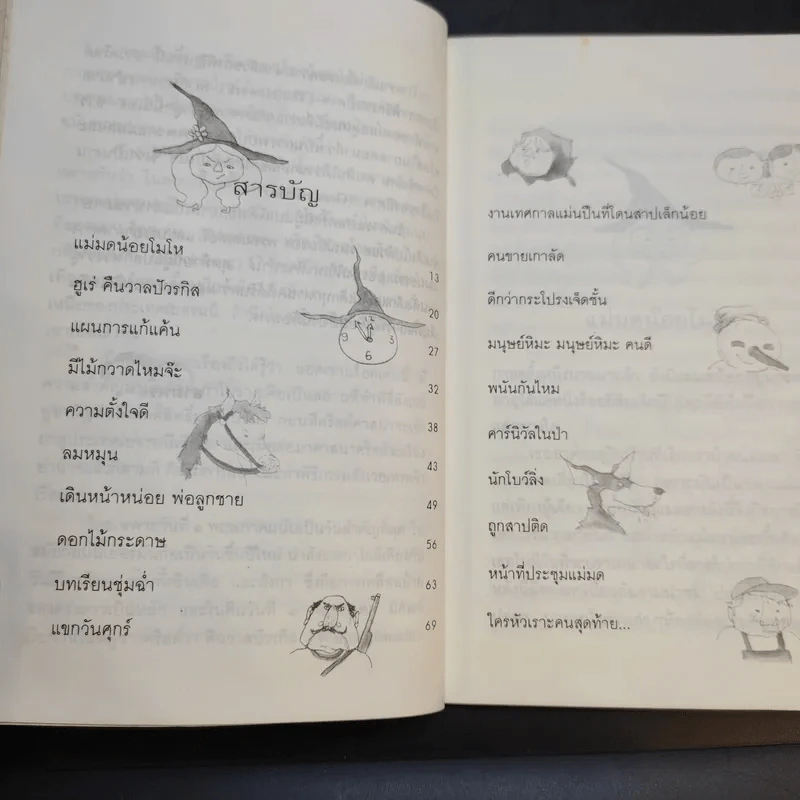 สารบัญ
แม่มดน้อยโมโห 13
ฮูเร่ คืนวาลปัวรกิส 20
แผนการแก้แค้น 27
มีไม้กวาดไหมจ๊ะ 32
ความตั้งใจดี 38
ลมหมุน 43
เดินหน้าหน่อย พ่อลูกชาย 49
ดอกไม้กระดาษ 56
บทเรียนชุ่มฉ่ำ 63
แขกวันศุกร์ 69
12
9 3
6
งานเทศกาลแม่นปืนที่โดนสาปเล็กน้อย
คนขายเกาลัด
ดีกว่ากระโปรงเจ็ดชั้น
มนุษย์หิมะ มนุษย์หิมะ คนดี
พนันกันไหม
คาร์นิวัลในป่า
นักโบว์ลิ่ง
ถูกสาปติด
หน้าที่ประชุมแม่มด
ใครหัวเราะคนสุดท้าย...